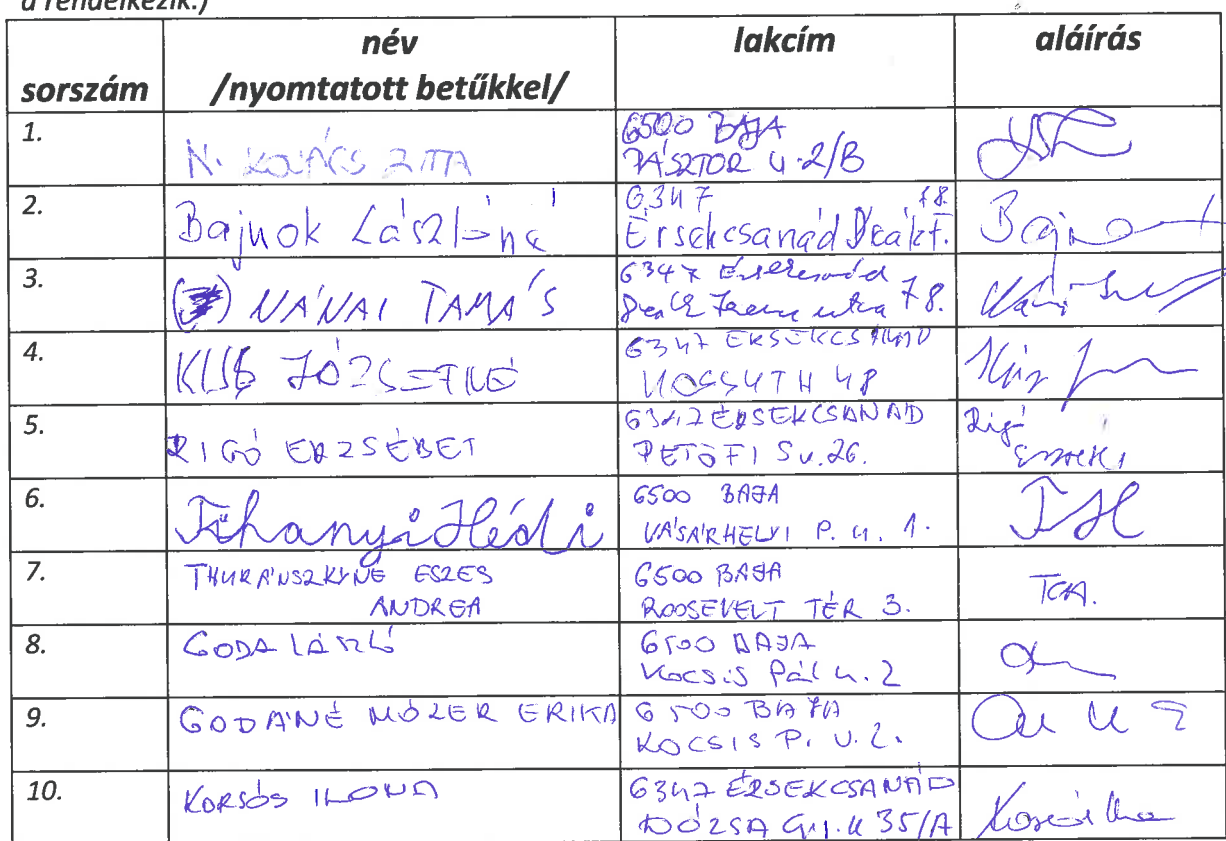 a rendelkezik.)
sorszám név /nyomtatott betűkkel/ lakcím aláírás
1. N. KOVÁCS ZITTA 6500 BAJA
PÁSZTOR U. 2/B
2. Bajnok Lászlóné 6347 78.
Érsekcsanád Deák F. Bajnok
3. NÁNAI TAMÁS 6347 Érsekcsanád
Deák Ferenc utca 78.
4. KISS JÓZSEFNÉ 6347 ÉRSEKCSANÁD
KOSSUTH 48
5. RIGÓ ERZSÉBET 6347 ÉRSEKCSANÁD
PETŐFI S u. 26. Rigó
6. Tihanyi Hédi 6500 BAJA
VÁSÁRHELYI P. u. 1. TH
7. THURÁNSZKYNÉ ESZES
ANDREA 6500 BAJA
ROOSEVELT TÉR 3.
8. GODA LÁSZLÓ 6500 BAJA
Kocsis Pál u. 2
9. GODÁNÉ MÓZER ERIKA 6500 BAJA
KOCSIS P. U. 2.
10. KORSÓS ILONA 6347 ÉRSEKCSANÁD
DÓZSA GY. U 35/A